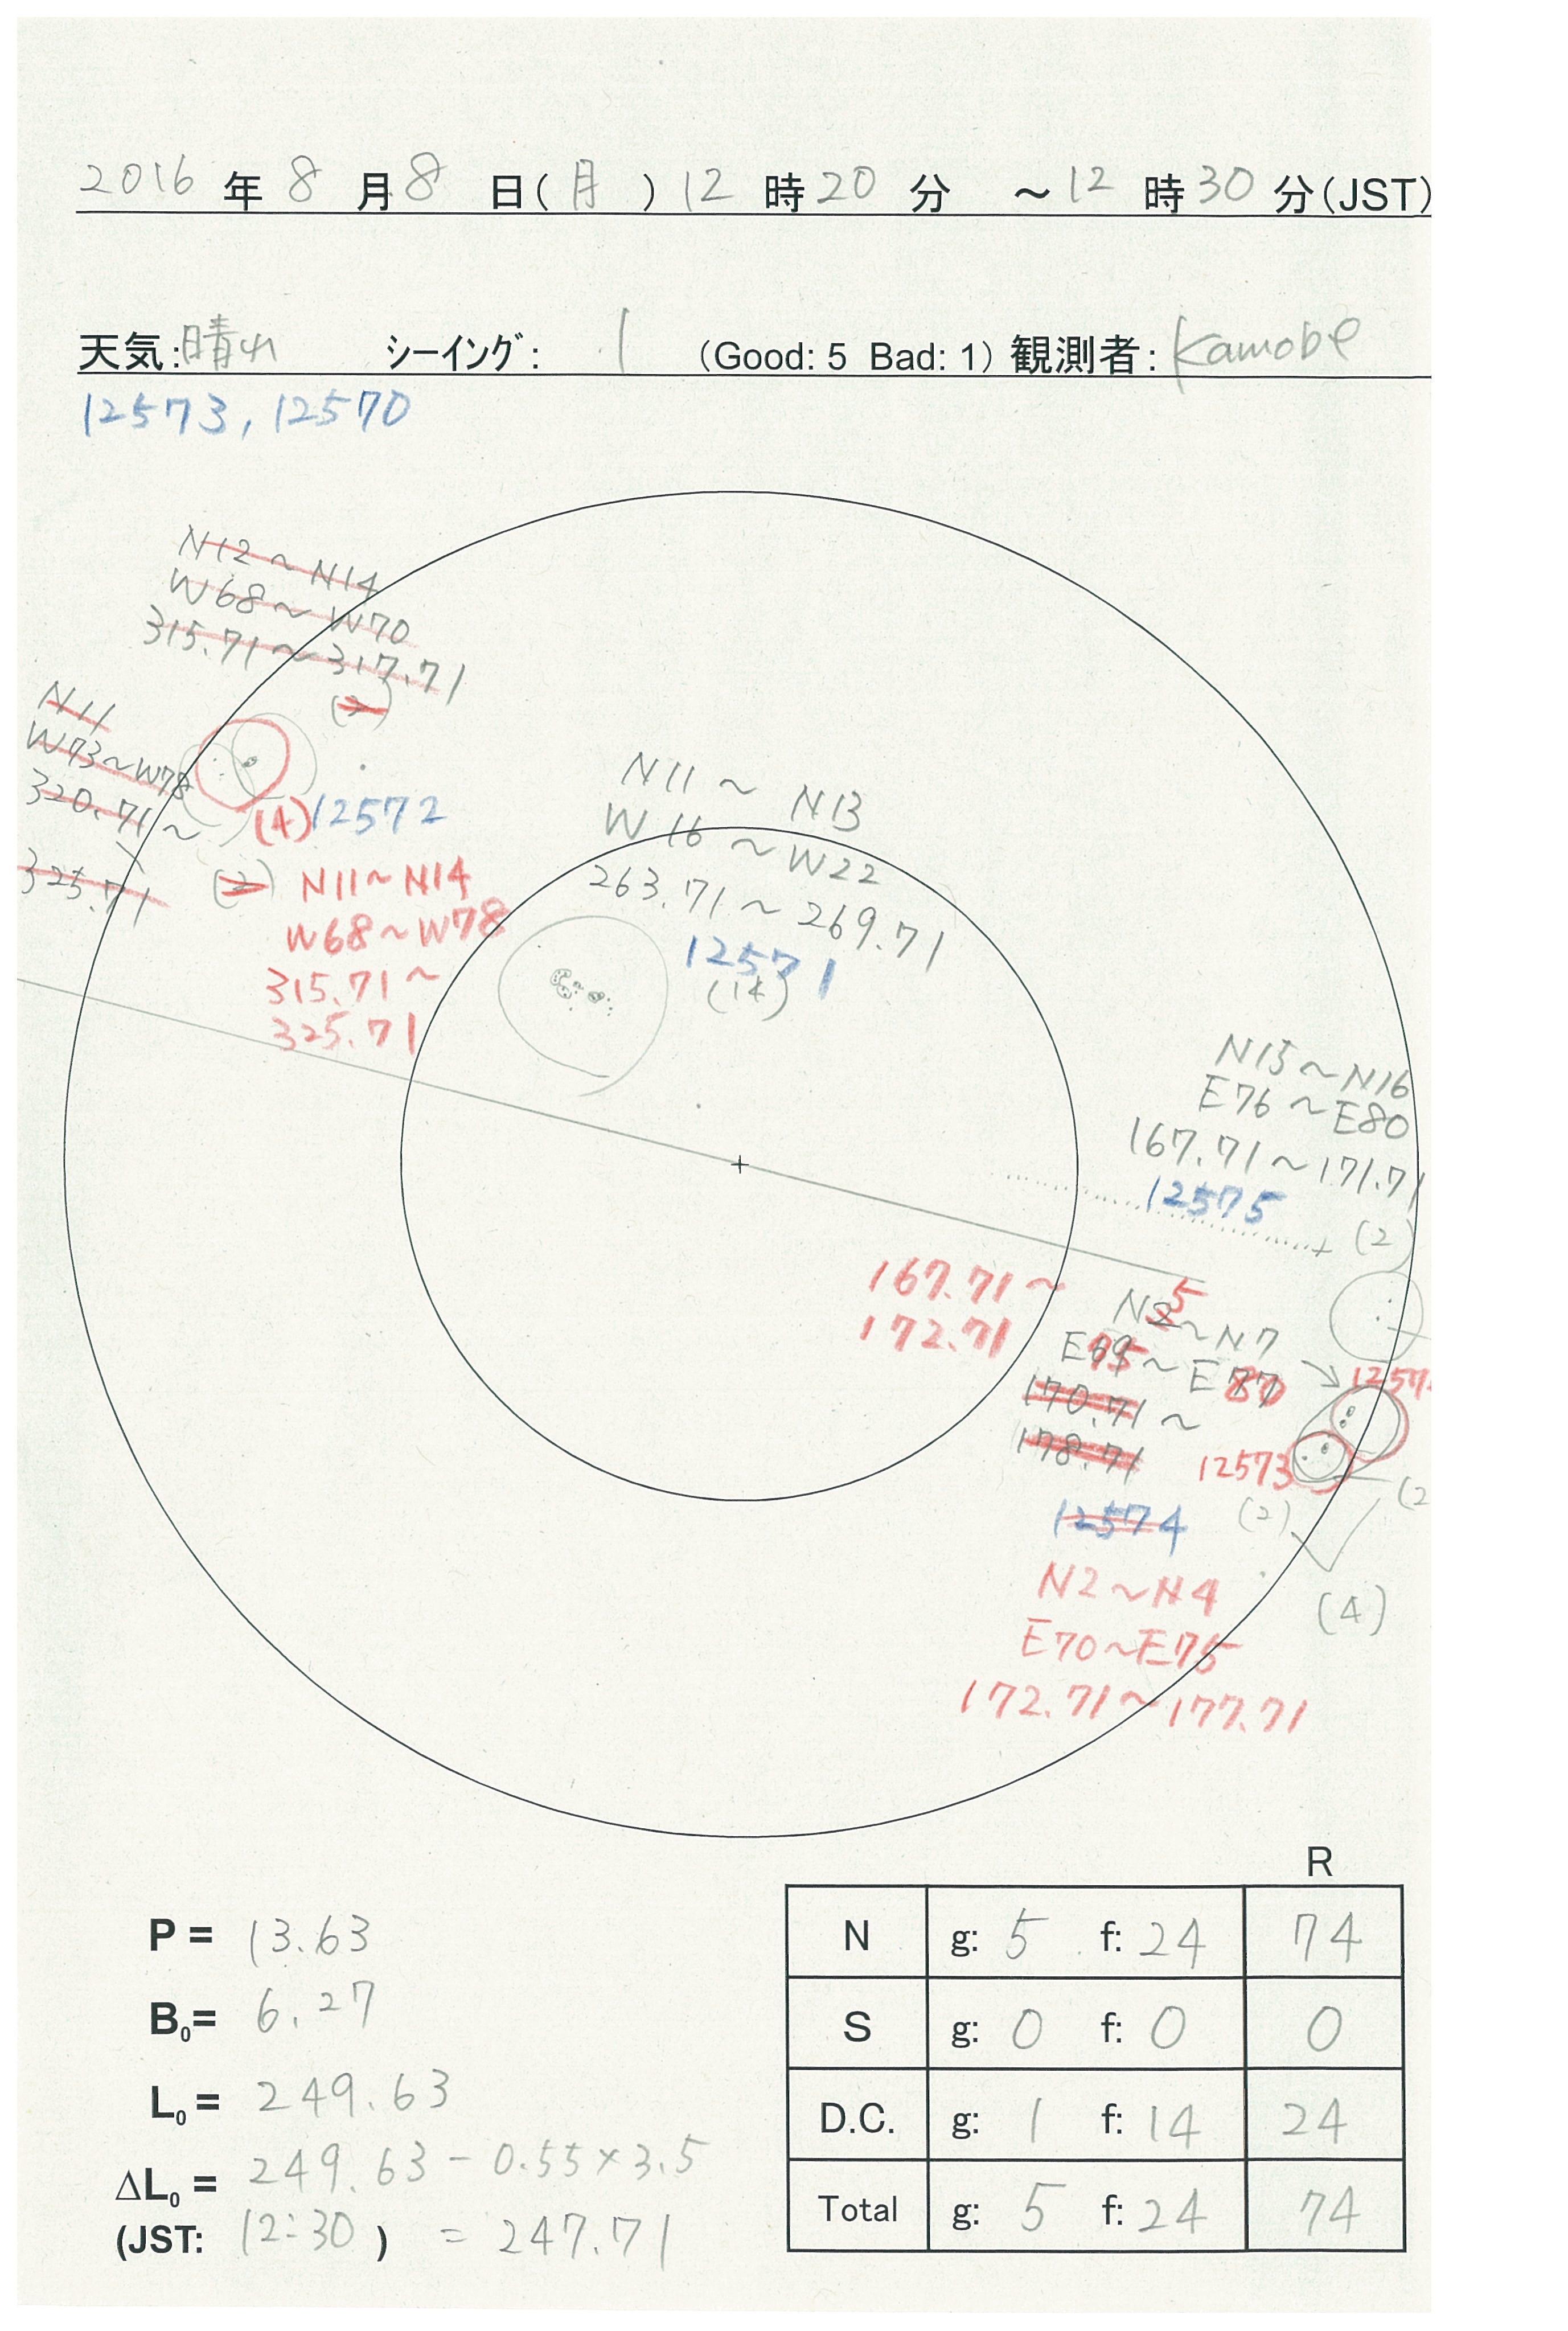 2016年 8月8日(月)12時20分 ～12時30分(JST)
天気:晴れ シーイング: 1 (Good: 5 Bad: 1) 観測者: Kamobe
12573, 12570
N12～N14
W68～W70
315.71～317.71
N11
W73～W78
320.71～
325.71
(2)
(4)12572
N11～N14
W68～W78
315.71～
325.71
N11～N13
W16～W22
263.71～269.71
12571
(14)
N15～N16
E76～E80
167.71～171.71
12575
(2)
167.71～
172.71
N5～N7
E75～E80
170.71～
178.71
12573
(2)
(2
(4)
12574
N2～N4
E70～E75
172.71～177.71
P = 13.63
B0= 6.27
L0= 249.63
ΔL0= 249.63-0.55×3.5
(JST: 12:30) = 247.71
R
N g: 5 f: 24 74
S g: 0 f: 0 0
D.C. g: 1 f: 14 24
Total g: 5 f: 24 74